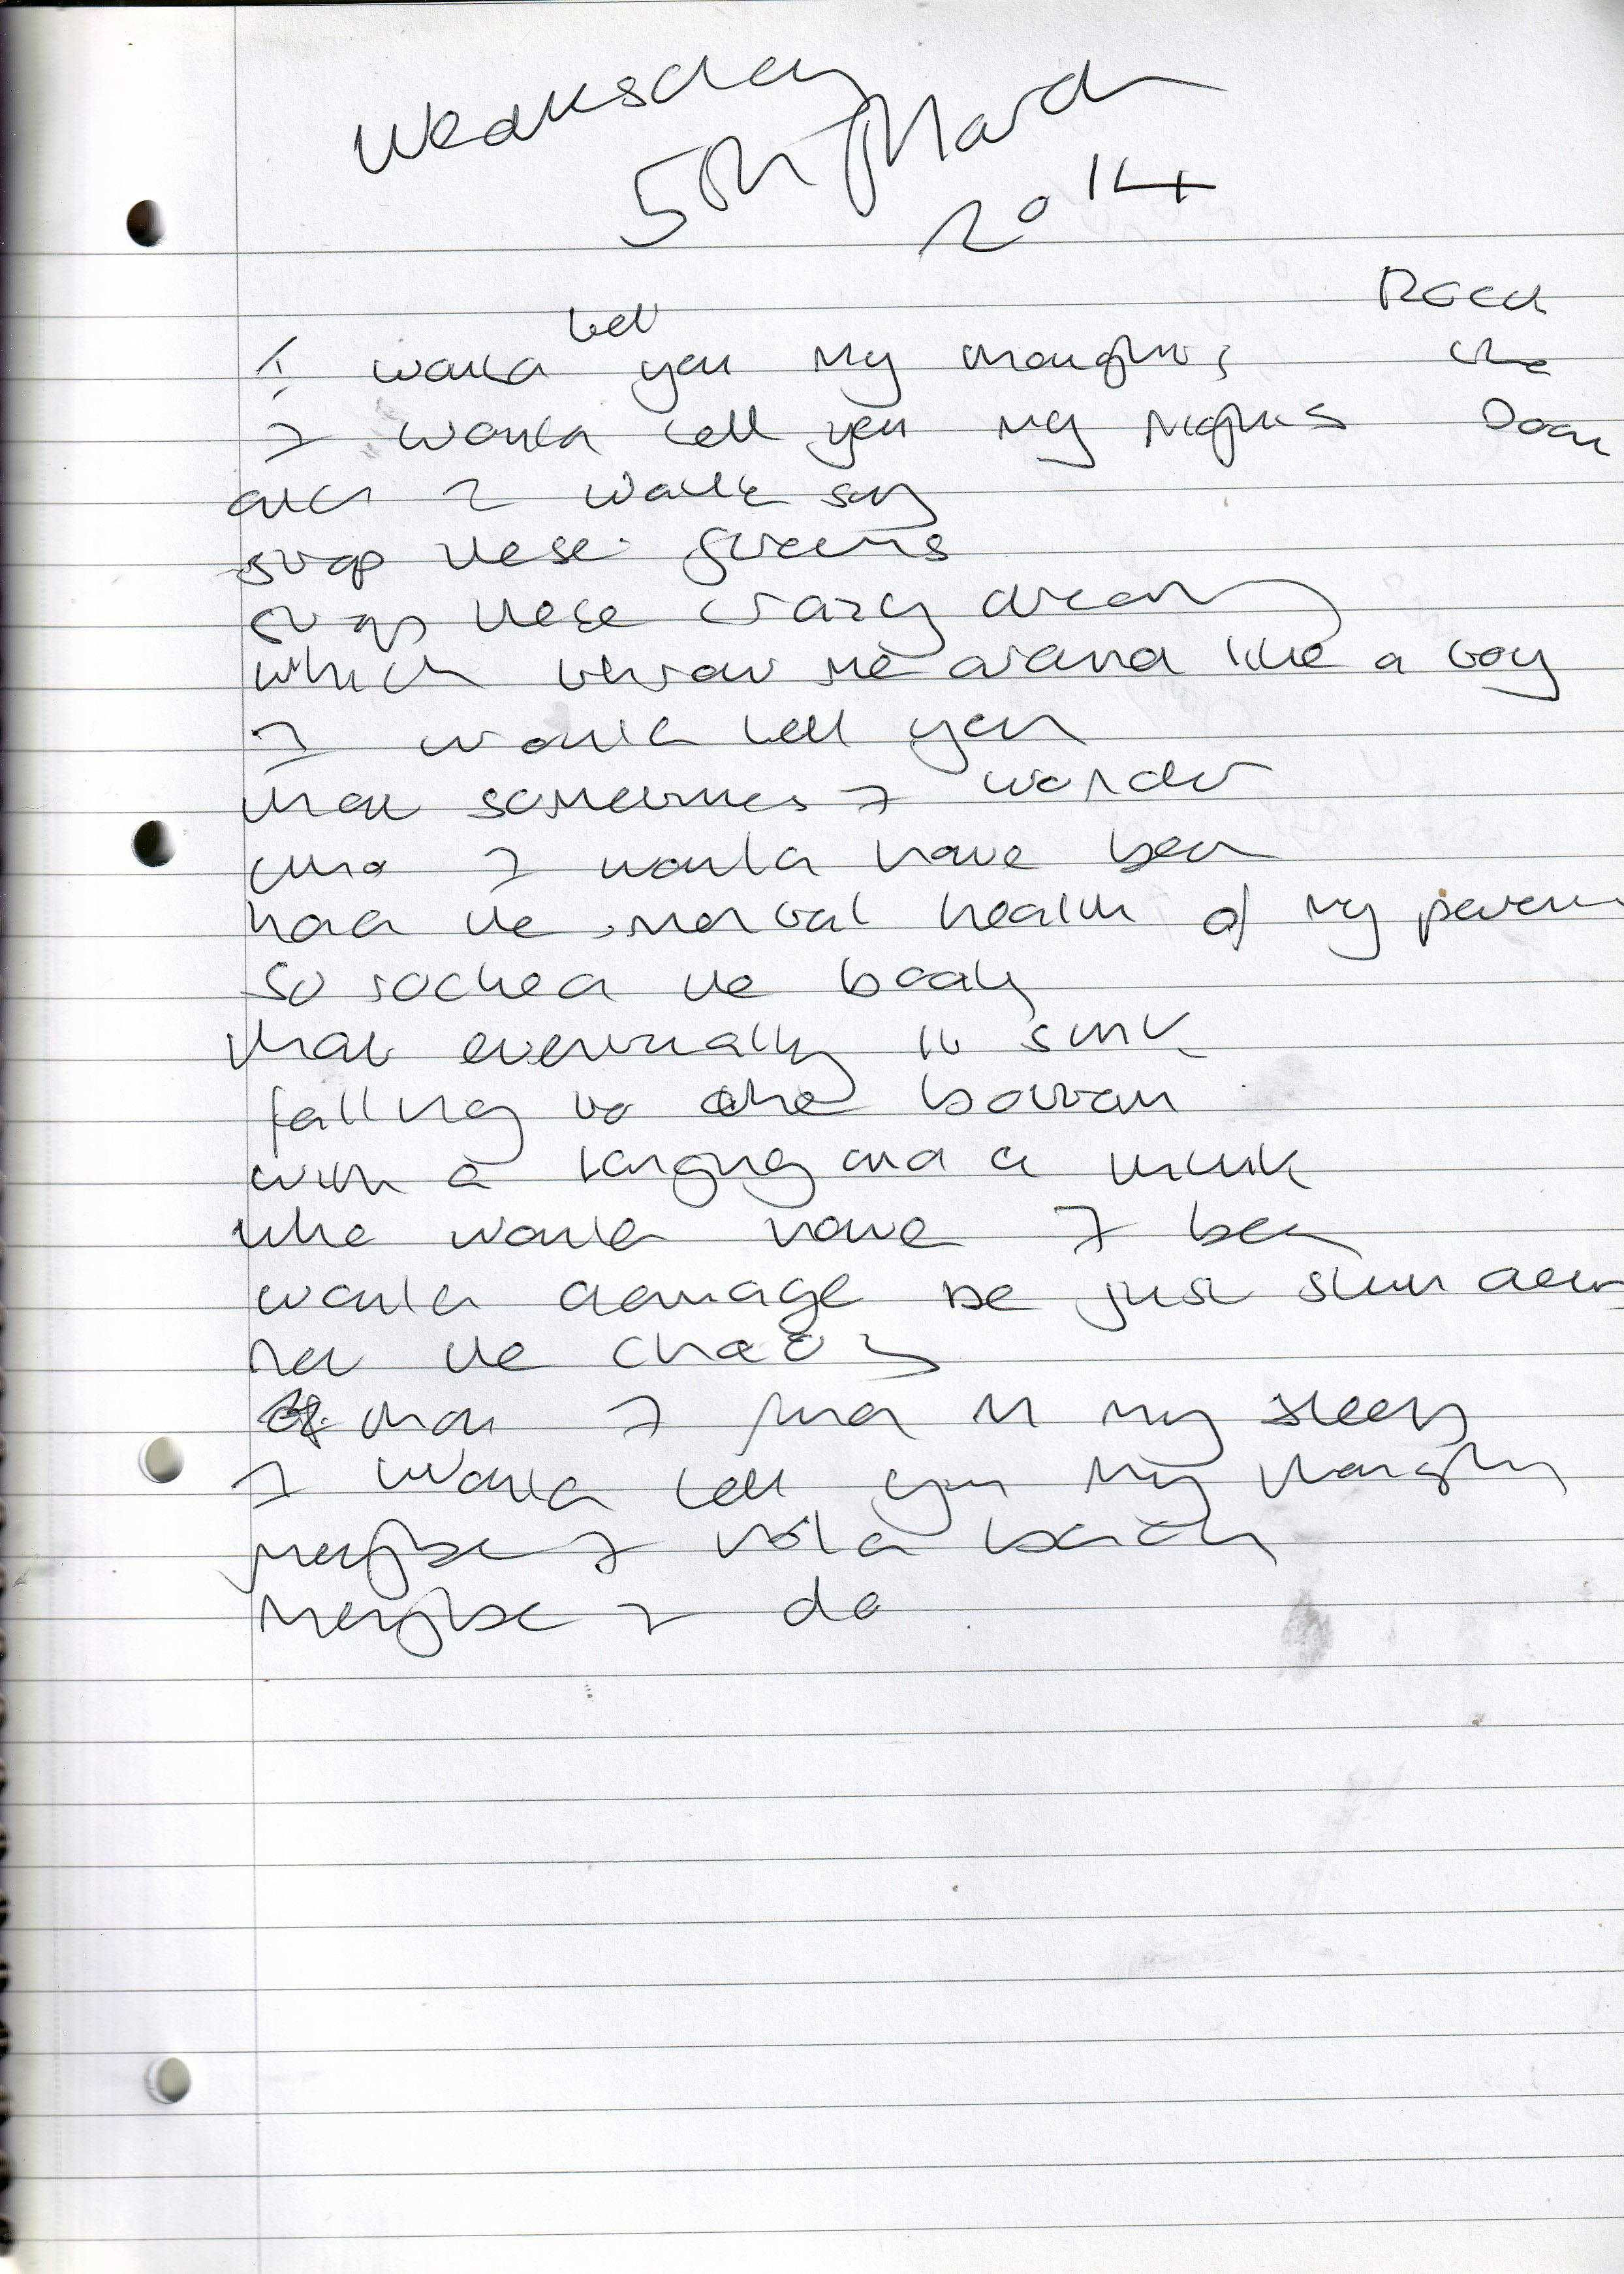 Wednesday
5th March
2014
Read
the
Door
tell
I would you my thoughts
I would tell you my nights
and I would say
stop these
stop these crazy dreams
which throw me around like a toy
I would tell you
that sometimes I wonder
who I would have been
had the mental health of my parents
so rocked the boat
that eventually it sunk
falling to the bottom
with a longing and a
who would have I been
would damage be just skin deep
not the chaos
that I find in my sleep
I would tell you my thoughts
maybe I hold back
maybe I do